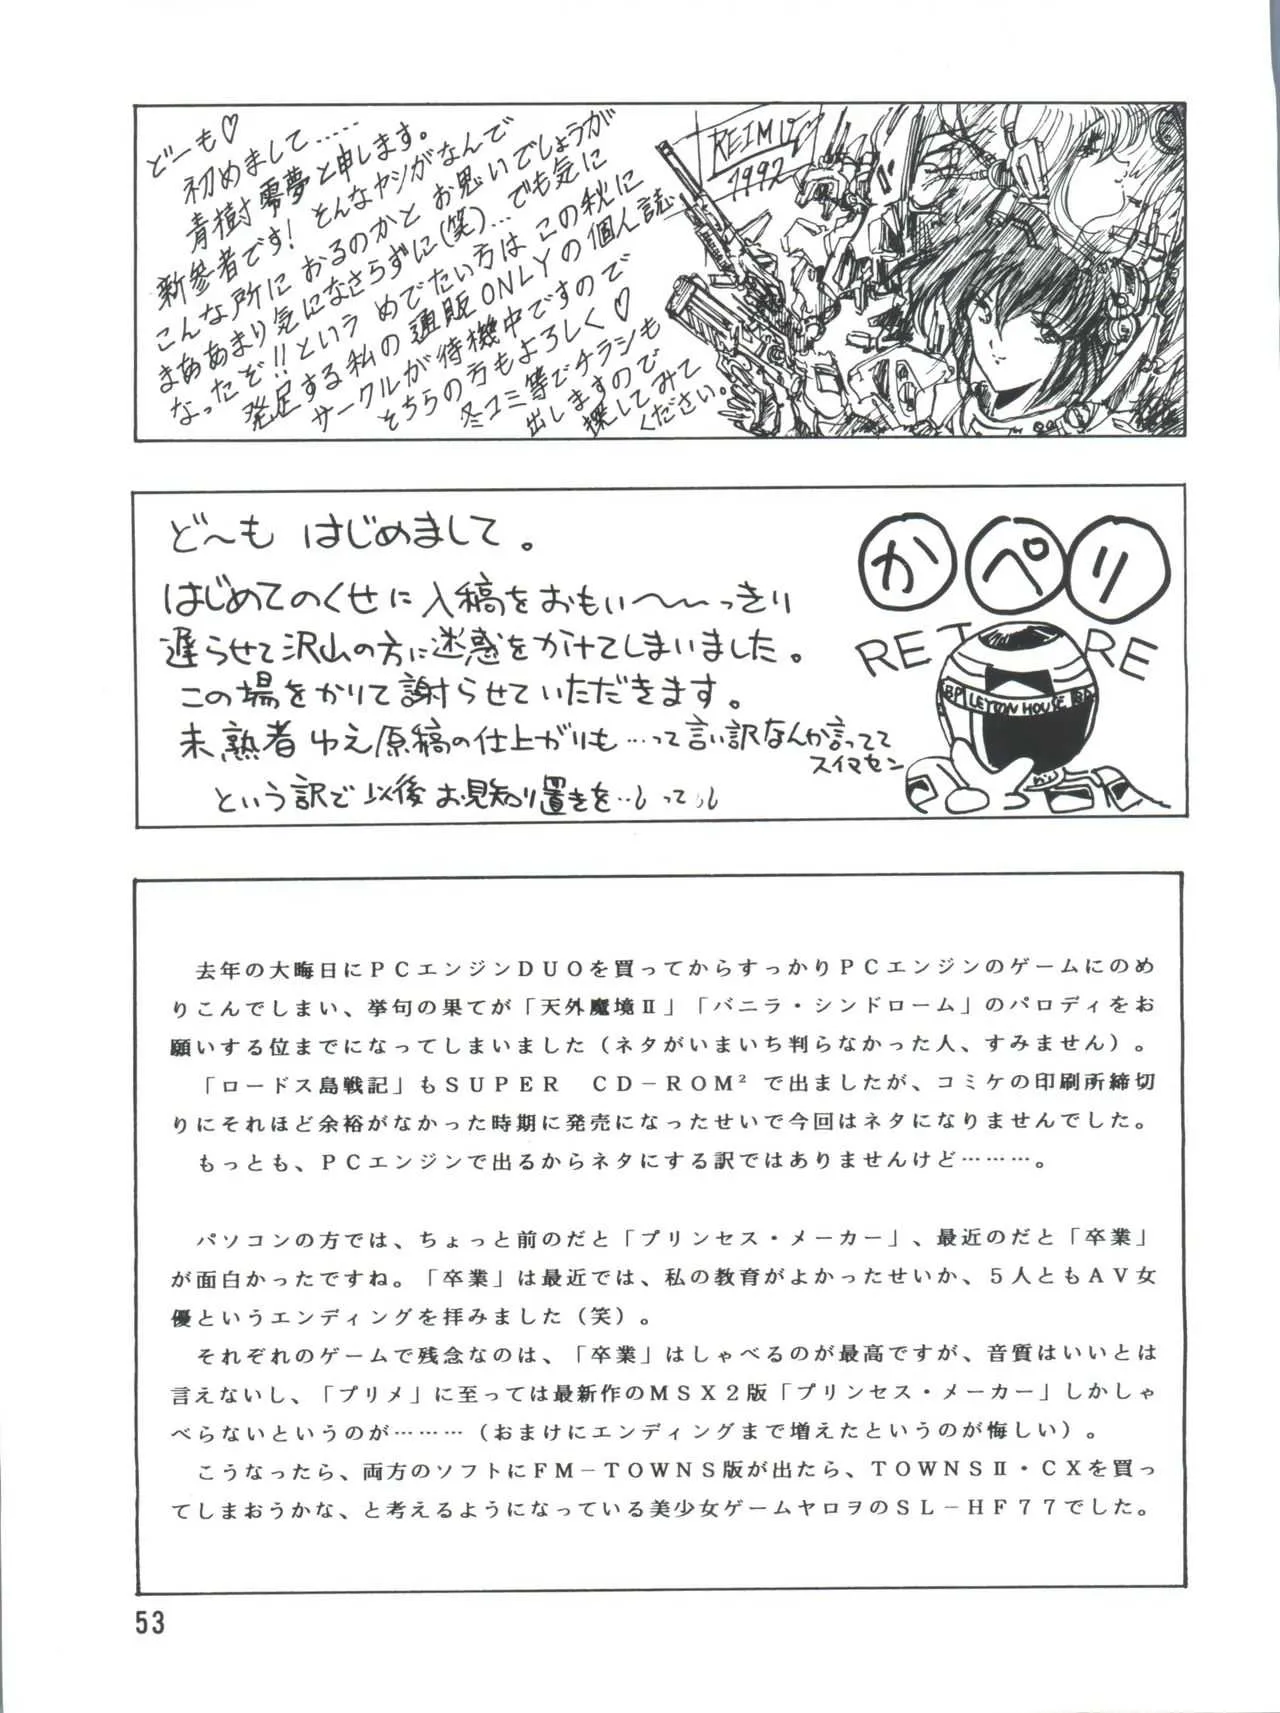 どーも♡
初めまして……
青樹 零夢と申します。
新参者です！そんなヤツがなんで
こんな所におるのかとお思いでしょうが
まああまり気になさらずに(笑)…でも気に
なったぞ!!というめでたい方はこの秋に
発足する私の通販ONLYの個人誌
サークルが待機中ですので
そちらの方もよろしく♡
冬コミ等でチラシも
出しますので
探してみて
ください。
REIMU
1992
ど〜も はじめまして。
はじめてのくせに入稿をおもい〜〜っきり
遅らせて沢山の方に迷惑をかけてしまいました。
この場をかりて謝らせていただきます。
未熟者ゆえ原稿の仕上がりも…って言い訳なんか言ってて
スイマセン
という訳で以後お見知り置きを…って
かペリ
RETIRE
BP LEYTON HOUSE BP
去年の大晦日にＰＣエンジンＤＵＯを買ってからすっかりＰＣエンジンのゲームにのめ
りこんでしまい、挙句の果てが「天外魔境Ⅱ」「バニラ・シンドローム」のパロディをお
願いする位までになってしまいました（ネタがいまいち判らなかった人、すみません）。
「ロードス島戦記」もＳＵＰＥＲ　ＣＤ－ＲＯＭ²で出ましたが、コミケの印刷所締切
りにそれほど余裕がなかった時期に発売になったせいで今回はネタになりませんでした。
もっとも、ＰＣエンジンで出るからネタにする訳ではありませんけど………。
パソコンの方では、ちょっと前のだと「プリンセス・メーカー」、最近のだと「卒業」
が面白かったですね。「卒業」は最近では、私の教育がよかったせいか、５人ともＡＶ女
優というエンディングを拝みました（笑）。
それぞれのゲームで残念なのは、「卒業」はしゃべるのが最高ですが、音質はいいとは
言えないし、「プリメ」に至っては最新作のＭＳＸ２版「プリンセス・メーカー」しかしゃ
べらないというのが………（おまけにエンディングまで増えたというのが悔しい）。
こうなったら、両方のソフトにＦＭ－ＴＯＷＮＳ版が出たら、ＴＯＷＮＳⅡ・ＣＸを買っ
てしまおうかな、と考えるようになっている美少女ゲームヤロヲのＳＬ－ＨＦ７７でした。
53